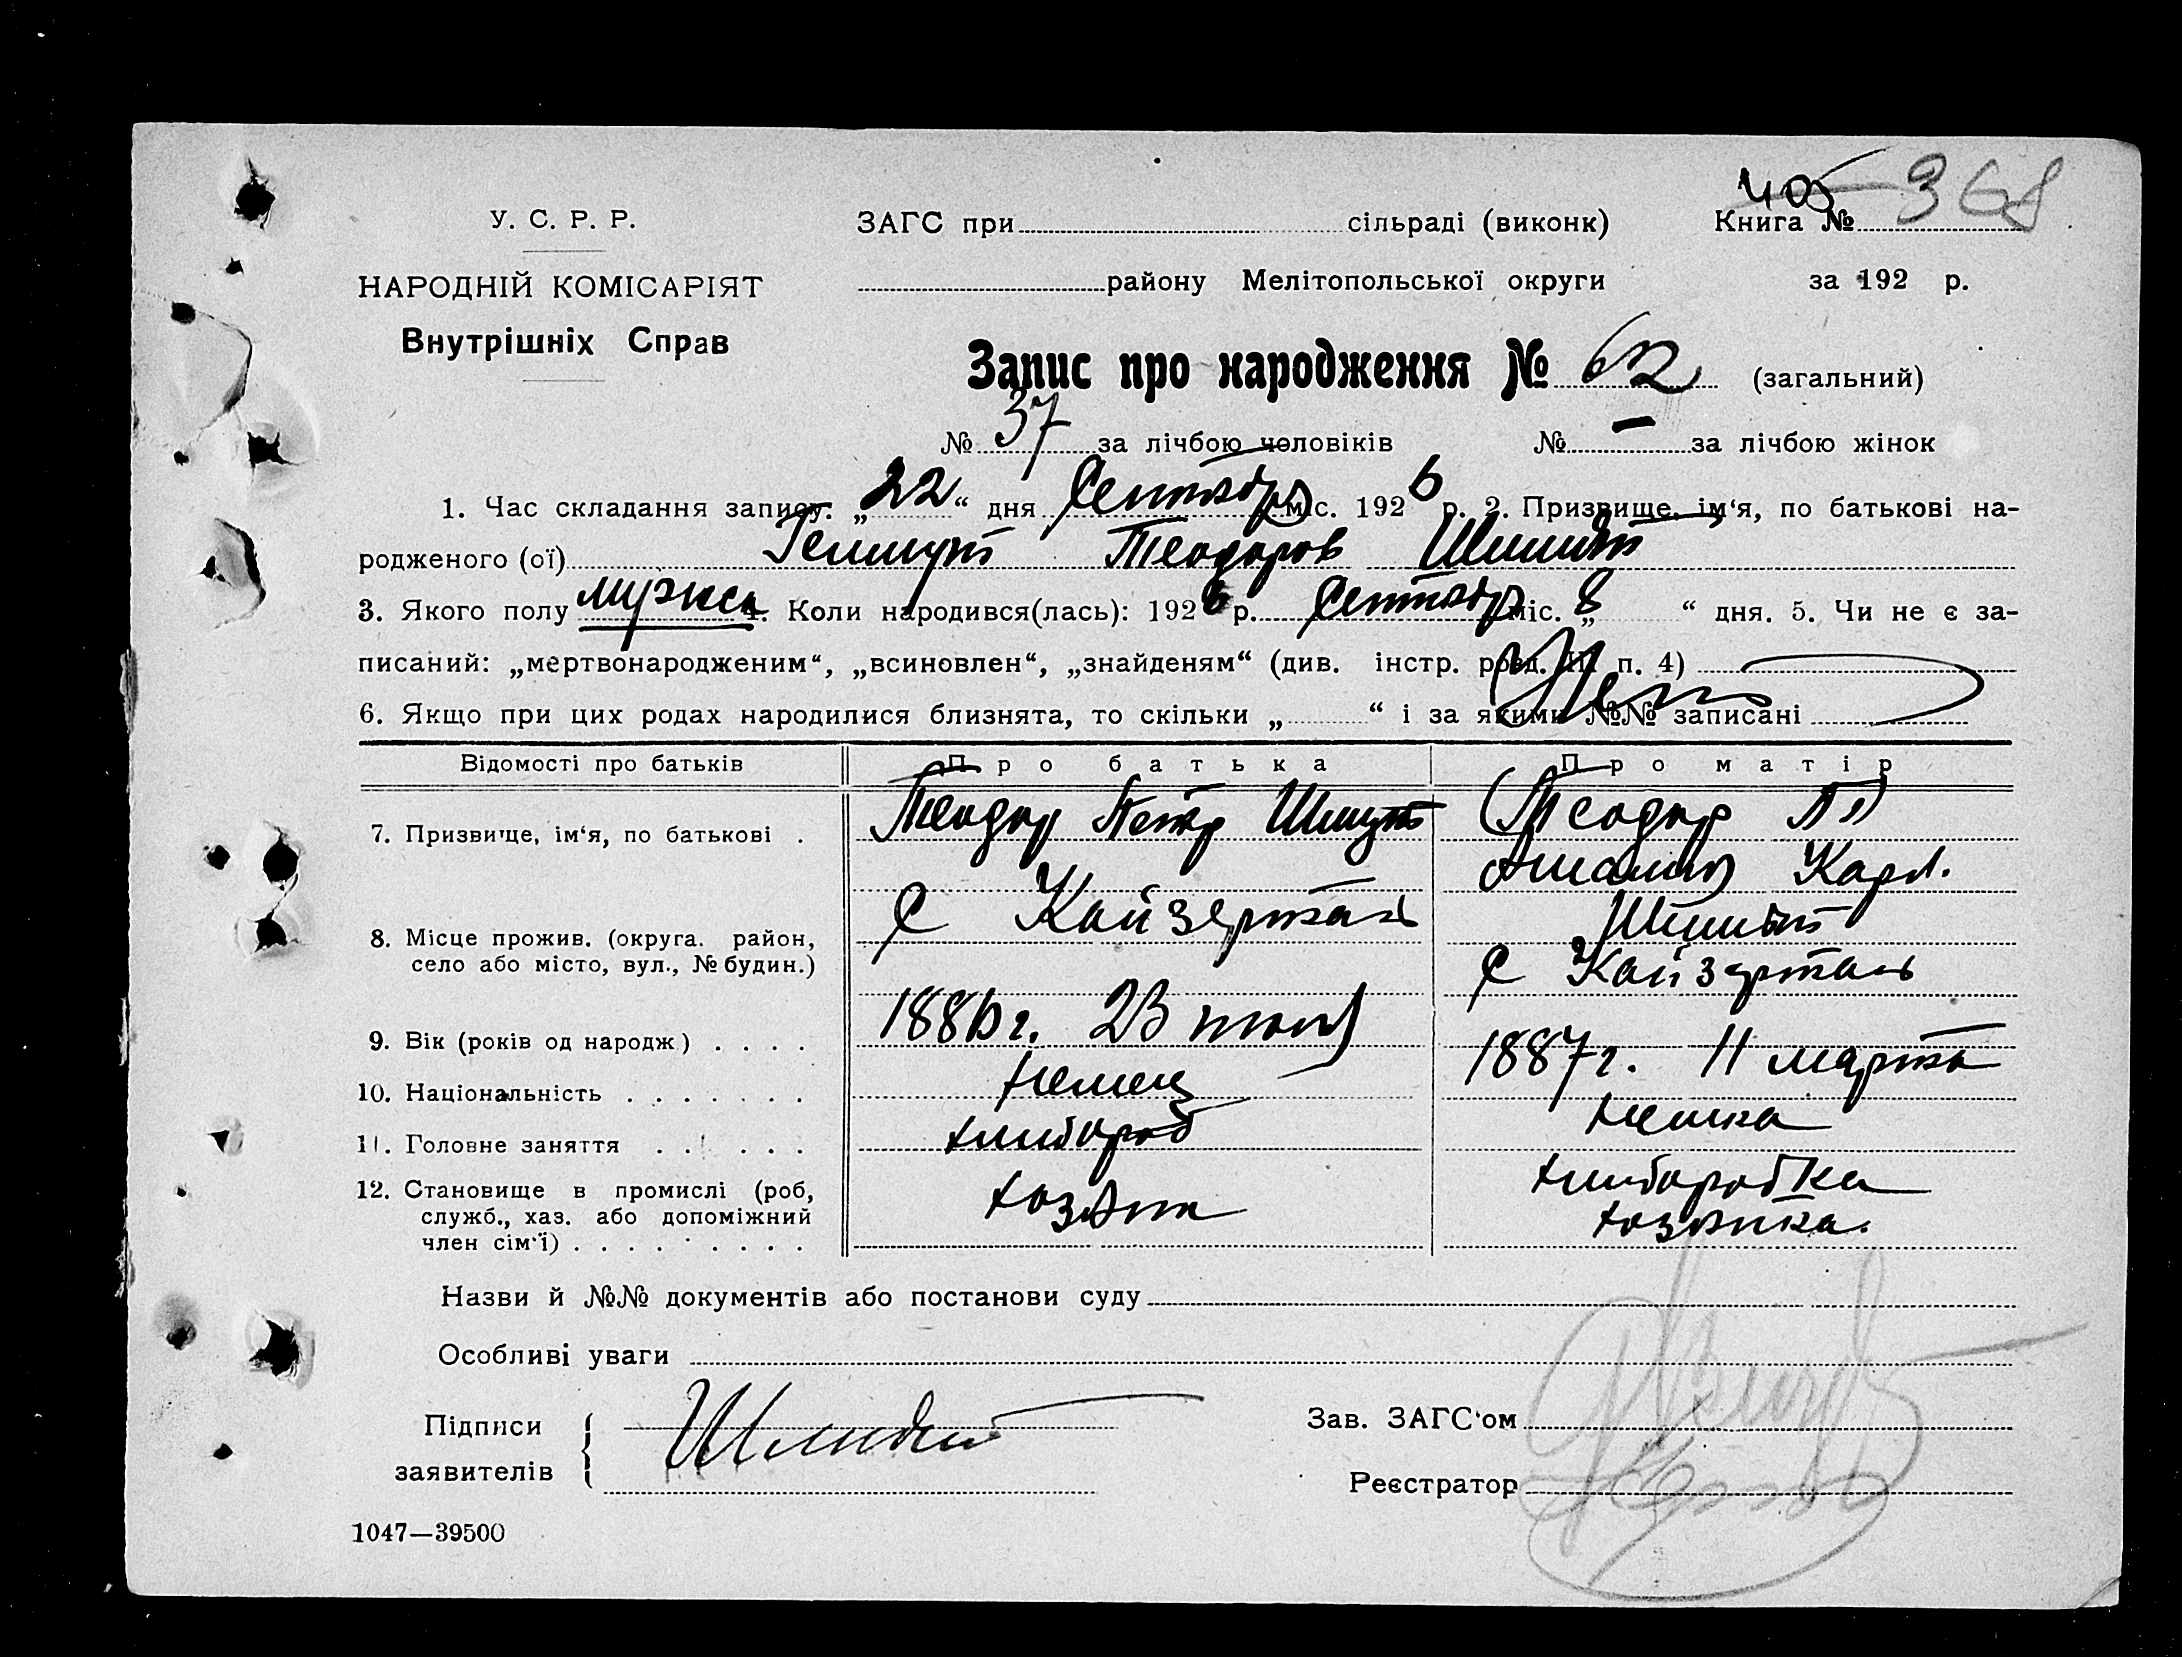 405 368
У. С. Р. Р. ЗАГС при сільраді (виконк) Книга №
НАРОДНІЙ КОМІСАРІЯТ району Мелітопольської округи за 192 р.
Внутрішніх Справ
Запис про народження № 62 (загальний)
№ 37 за лічбою чоловіків № — за лічбою жінок
1. Час складання запису: „22“ дня Сентябр міс. 1926 р. 2. Призвище, ім‘я, по батькові на-
родженого (ої) Гельмут Теодоров Шмидт
3. Якого полу мужск 4. Коли народився(лась): 1926 р. Сентябр міс. „8“ дня. 5. Чи не є за-
писаний: „мертвонародженим“, „всиновлен“, „знайденям“ (див. інстр. розд. III п. 4) Нет
6. Якщо при цих родах народилися близнята, то скільки „ “ і за якими №№ записані
Відомості про батьків Про батька Про матір
7. Призвище, ім‘я, по батькові . Теодор Петр Шмидт (Теодор
Амалия Карл.
Шмидт
8. Місце прожив. (округа. район, село або місто, вул., № будин.) с Кайзерталь с Кайзерталь
9. Вік (років од народж) . . . . 1886 г. 23 1887 г. 11 марта
10. Національність . . . . . . . Немец Немка
11. Головне заняття . . . . . . хлибороб хлиборобка
12. Становище в промислі (роб, служб., хаз. або допоміжний член сім‘ї) . . . . . . . . . хозяин хозяйка.
Назви й №№ документів або постанови суду
Особливі уваги
Підписи заявителів Шмидт
Зав. ЗАГС‘ом
Реєстратор
1047—39500